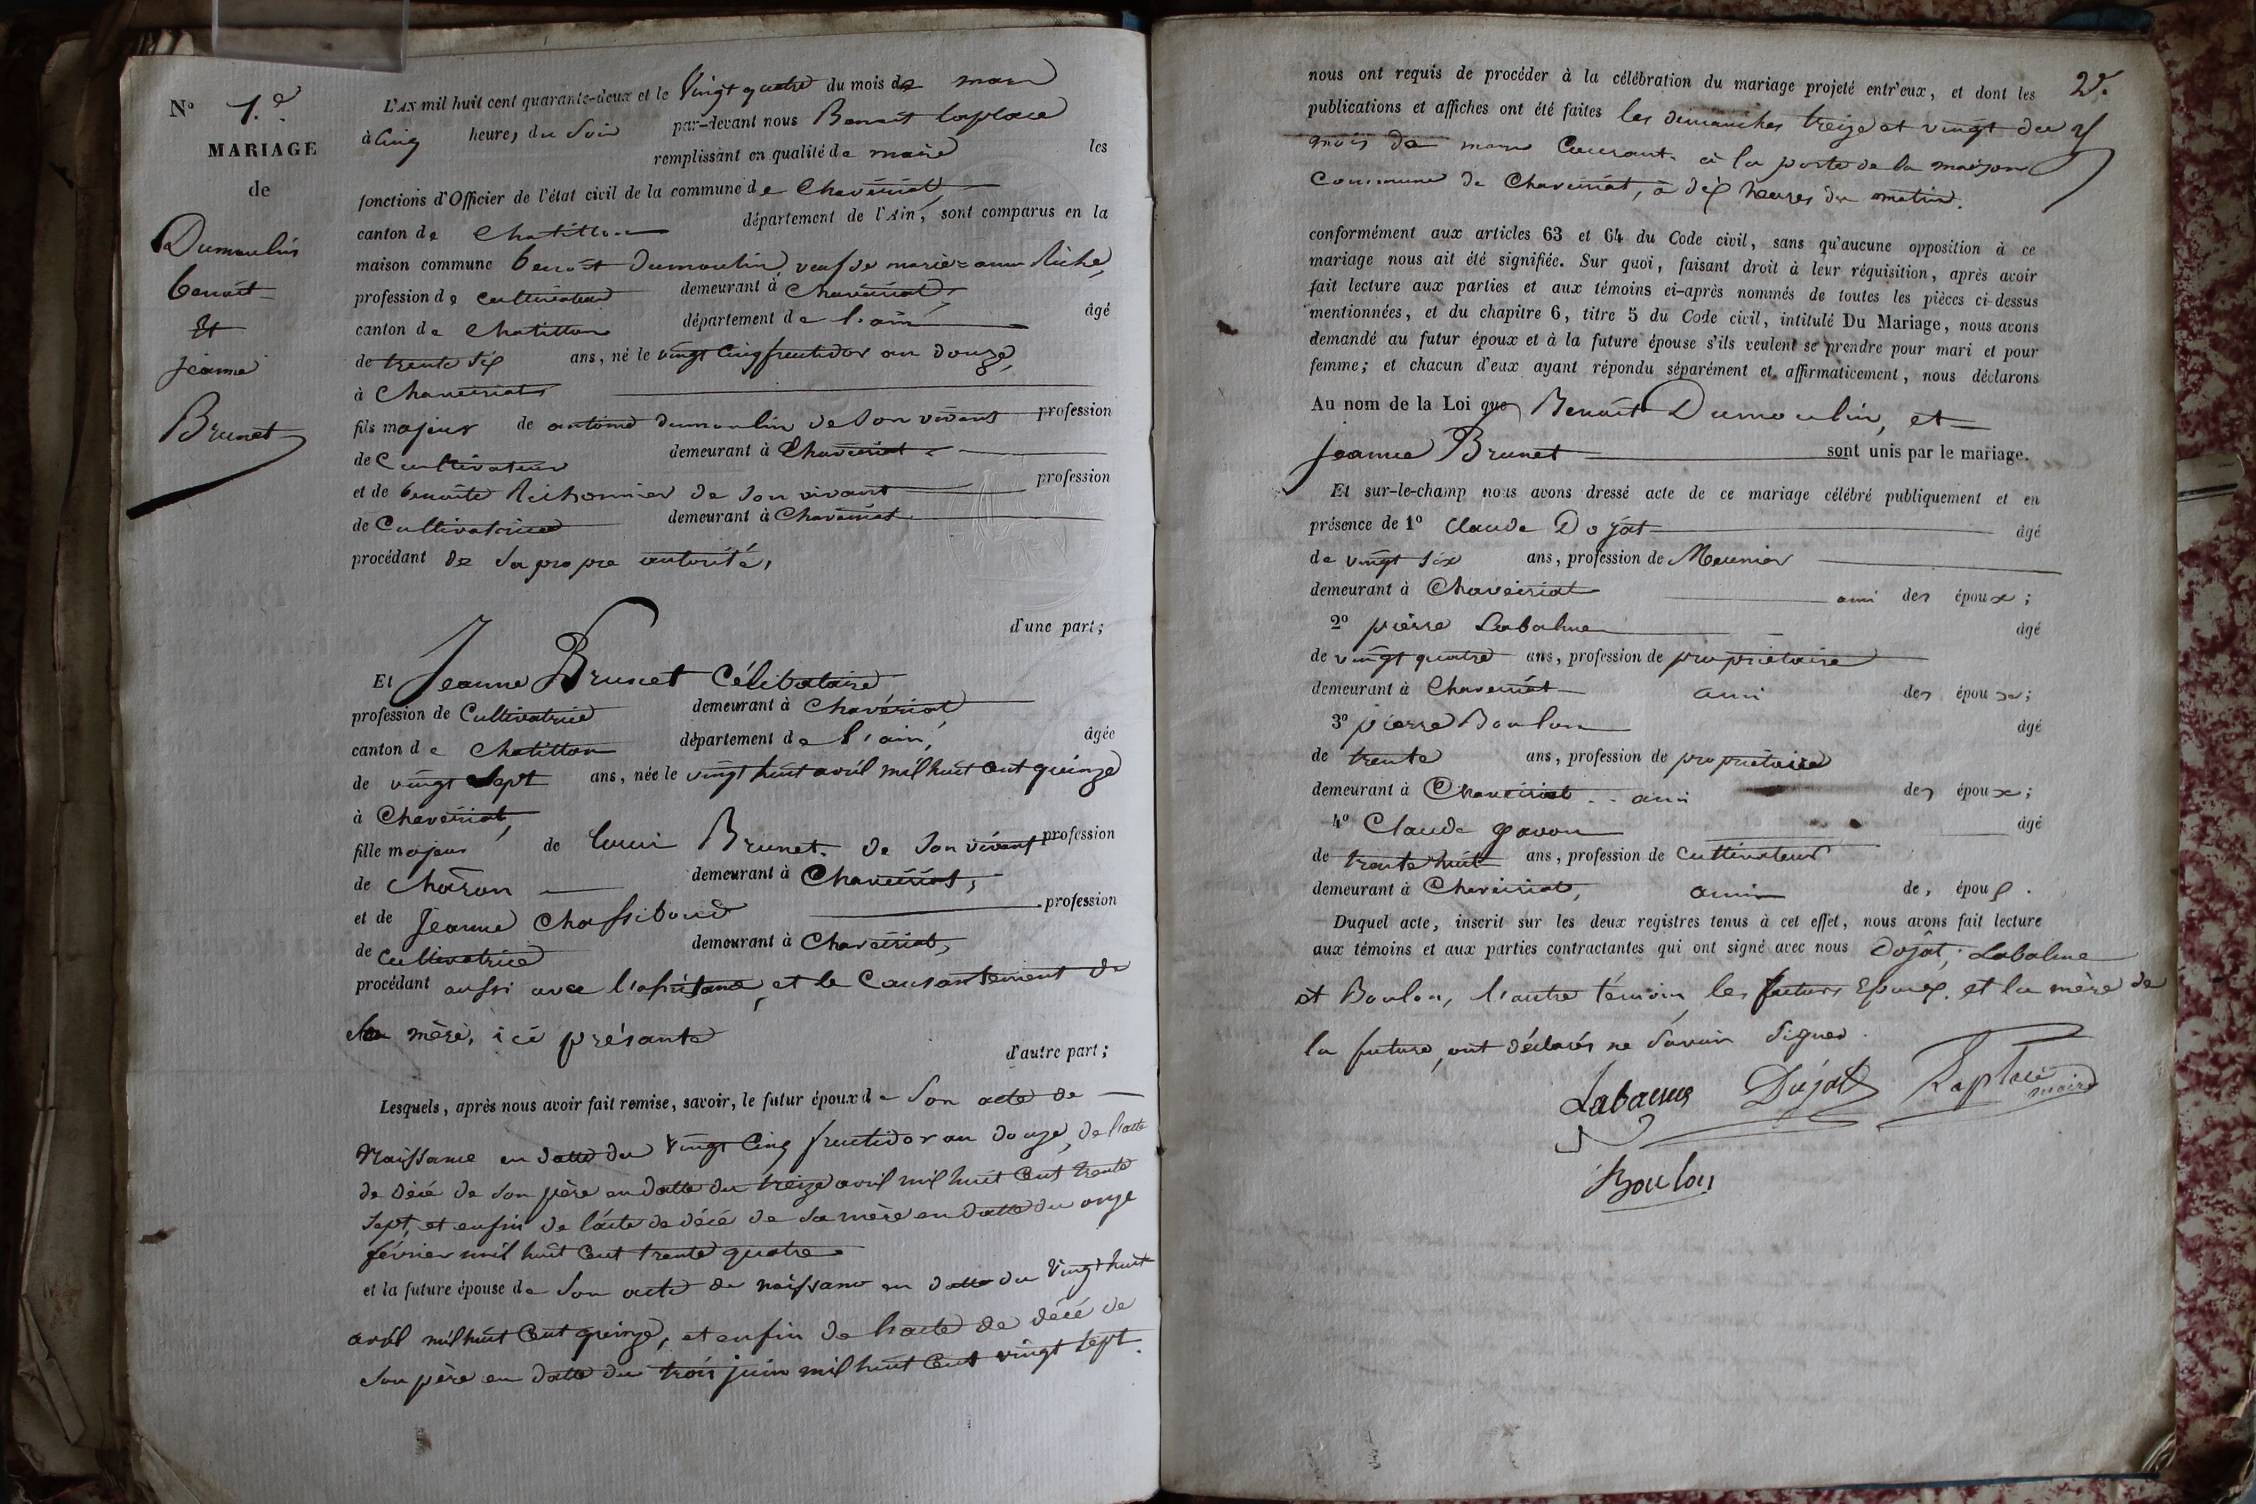 N° 7.e
MARIAGE
de
Dumoulin
benoit
Et
jeanne
Brunet
L'AN mil huit cent quarante-deux et le Vingt quatre du mois de mars
à Cinq heures du Soir par-devant nous Benoit laplace
remplissant en qualité de maire les
fonctions d'Officier de l'état civil de la commune de Chaveiriat
canton de Chatillon département de l'Ain, sont comparus en la
maison commune benoit Dumoulin, veuf de marie-anne Riche,
profession de cultivateur demeurant à Chaveiriat,
canton de Chatillon département de l'ain âgé
de trente six ans, né le vingt cinq fructidor an douze,
à Chaveiriat
fils majeur de antoine dumoulin de son vivant profession
de Cultivateur demeurant à Chaveiriat
et de benoite Richonnier de son vivant profession
de Cultivatrice demeurant à Chaveiriat
procédant de sa propre autorité,
d'une part;
Et Jeanne Brunet Célibataire
profession de Cultivatrice demeurant à Chavériat
canton de Chatillon département de l'ain, âgée
de vingt Sept ans, née le vingt huit avril mil huit Cent quinze
à Chaveiriat,
fille majeur de louis Brunet. de son vivant profession
de charon demeurant à Chaveiriat,
et de Jeanne Chassiboud profession
de Cultivatrice demeurant à Chaveiriat,
procédant aussi avec l'asistance, et le Consantement de
sa mère, ici présante
d'autre part;
Lesquels, après nous avoir fait remise, savoir, le futur époux de Son acte de
Naissance en datte du Vingt Cinq fructidor an douze, de l'acte
de décé de son père en datte du treize avril mil huit Cent trente
sept, et enfin de l'acte de décé de sa mère en datte du onze
février mil huit Cent trente quatre
et la future épouse de Son acte de naissance en datte du Vingt huit
avril mil huit Cent quinze, et enfin de l'acte de décé de
son père en datte du trois juin mil huit Cent vingt sept.
2e.
nous ont requis de procéder à la célébration du mariage projeté entr'eux, et dont les
publications et affiches ont été faites les dimanches treize et vingt du
mois de mars Courant. à la porte de la maison
Commune de Chaveiriat, à dix heures du matin.
conformément aux articles 63 et 64 du Code civil, sans qu'aucune opposition à ce
mariage nous ait été signifiée. Sur quoi, faisant droit à leur réquisition, après avoir
fait lecture aux parties et aux témoins ci-après nommés de toutes les pièces ci-dessus
mentionnées, et du chapitre 6, titre 5 du Code civil, intitulé Du Mariage, nous avons
demandé au futur époux et à la future épouse s'ils veulent se prendre pour mari et pour
femme; et chacun d'eux ayant répondu séparément et affirmativement, nous déclarons
Au nom de la Loi que Benoit Dumoulin, et
Jeanne Brunet sont unis par le mariage.
Et sur-le-champ nous avons dressé acte de ce mariage célébré publiquement et en
présence de 1° Claude Dojat âgé
de vingt six ans, profession de Meunier
demeurant à Chaveiriat ami des époux;
2° pierre Labalme âgé
de vingt quatre ans, profession de propriétaire
demeurant à Chaveiriat ami des époux;
3° pierre Boulon âgé
de trente ans, profession de propriétaire
demeurant à Chaveiriat ami des époux;
4° Claude gavon âgé
de trente huit ans, profession de Cultivateur
demeurant à Chaveiriat, ami des époux.
Duquel acte, inscrit sur les deux registres tenus à cet effet, nous avons fait lecture
aux témoins et aux parties contractantes qui ont signé avec nous Dojat, Labalme
et Boulon, l'autre témoin, les futurs Epoux, et la mère de
la future, ont déclarés ne savoir Signer.
Labalme Dojat Laplace maire
Boulon